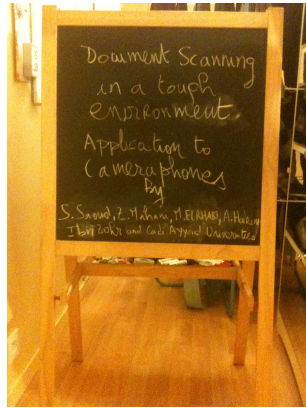 Document Scanning
in a tough
environment.
Application to
Cameraphones
By
S. Saoud, Z. Mahani, M. ELRHABI, A. Hakim
Ibn Zohr and Cadi Ayyad Universities